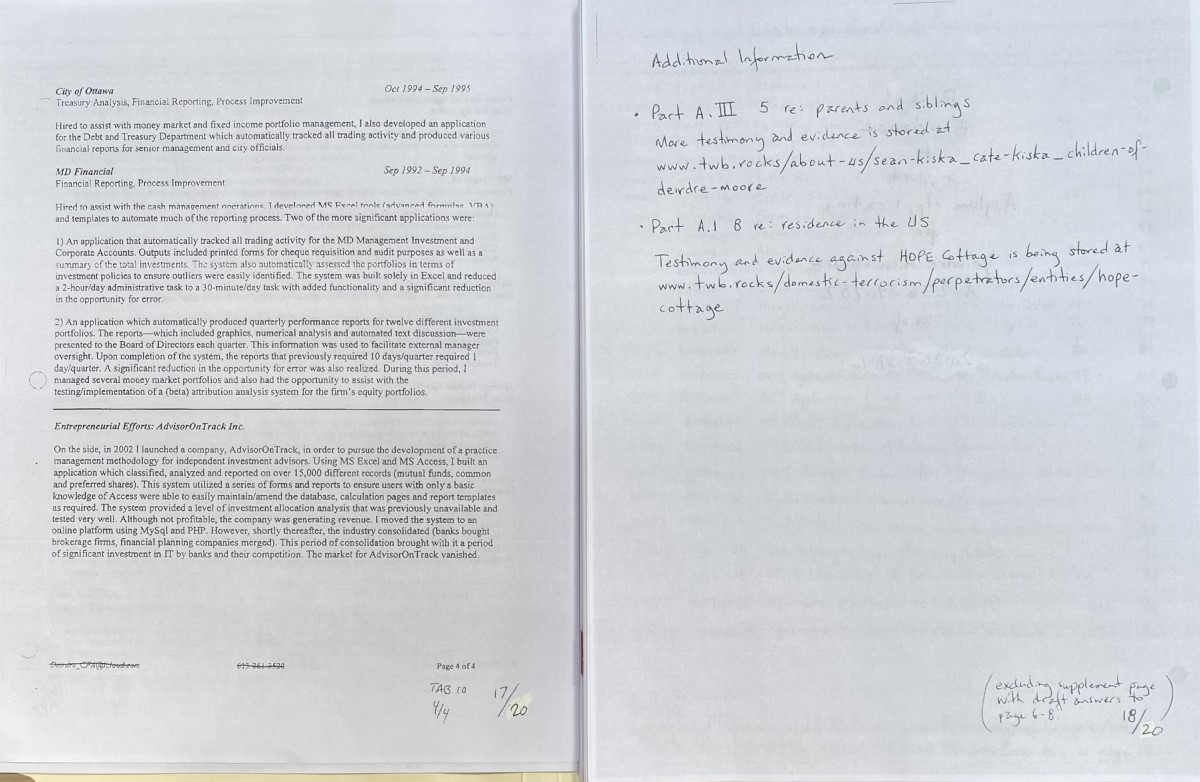 City of Ottawa
Oct 1994 – Sep 1995
Treasury Analysis, Financial Reporting, Process Improvement
Hired to assist with money market and fixed income portfolio management, I also developed an application
for the Debt and Treasury Department which automatically tracked all trading activity and produced various
financial reports for senior management and city officials.
MD Financial
Sep 1992 – Sep 1994
Financial Reporting, Process Improvement
Hired to assist with the cash management operations, I developed MS Excel tools (advanced formulae, VBA)
and templates to automate much of the reporting process. Two of the more significant applications were:
1) An application that automatically tracked all trading activity for the MD Management Investment and
Corporate Accounts. Outputs included printed forms for cheque requisition and audit purposes as well as a
summary of the total investments. The system also automatically assessed the portfolios in terms of
investment policies to ensure outliers were easily identified. The system was built solely in Excel and reduced
a 2-hour/day administrative task to a 30-minute/day task with added functionality and a significant reduction
in the opportunity for error.
2) An application which automatically produced quarterly performance reports for twelve different investment
portfolios. The reports—which included graphics, numerical analysis and automated text discussion—were
presented to the Board of Directors each quarter. This information was used to facilitate external manager
oversight. Upon completion of the system, the reports that previously required 10 days/quarter required 1
day/quarter. A significant reduction in the opportunity for error was also realized. During this period, I
managed several money market portfolios and also had the opportunity to assist with the
testing/implementation of a (beta) attribution analysis system for the firm's equity portfolios.
Entrepreneurial Efforts: AdvisorOnTrack Inc.
On the side, in 2002 I launched a company, AdvisorOnTrack, in order to pursue the development of a practice
management methodology for independent investment advisors. Using MS Excel and MS Access, I built an
application which classified, analyzed and reported on over 15,000 different records (mutual funds, common
and preferred shares). This system utilized a series of forms and reports to ensure users with only a basic
knowledge of Access were able to easily maintain/amend the database, calculation pages and report templates
as required. The system provided a level of investment allocation analysis that was previously unavailable and
tested very well. Although not profitable, the company was generating revenue. I moved the system to an
online platform using MySql and PHP. However, shortly thereafter, the industry consolidated (banks bought
brokerage firms, financial planning companies merged). This period of consolidation brought with it a period
of significant investment in IT by banks and their competition. The market for AdvisorOnTrack vanished.
Page 4 of 4
TAB 10
4/4
17/20
Additional Information
• Part A.III 5 re: parents and siblings
More testimony and evidence is stored at
www.twb.rocks/about-us/sean-kiska_cate-kiska_children-of-
deirdre-moore
• Part A.I 8 re: residence in the US
Testimony and evidence against HOPE Cottage is being stored at
www.twb.rocks/domestic-terrorism/perpetrators/entities/hope-
cottage
(excluding supplement page
with draft answers to
page 6-8.)
18/20